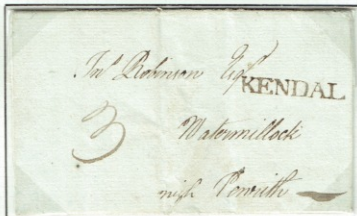 Jnº Robinson Esqr
KENDAL
3
Watermillock
nigh Penrith